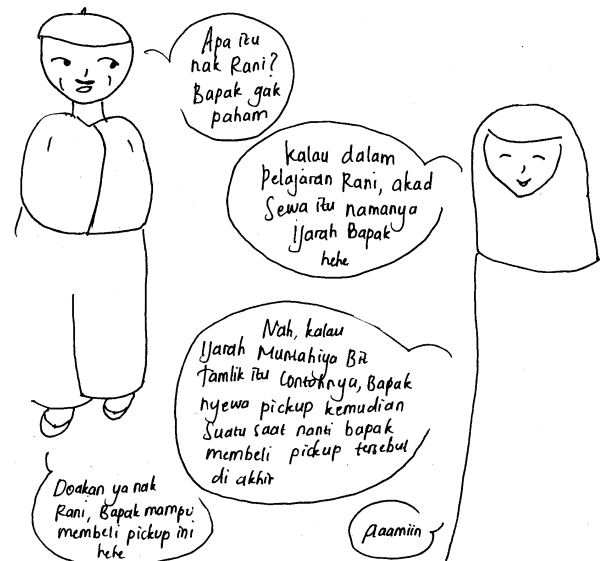 Apa itu
nak Rani?
Bapak gak
paham
kalau dalam
pelajaran Rani, akad
Sewa itu namanya
Ijarah Bapak
hehe
Nah, kalau
Ijarah Muntahiya Bit
tamlik itu Contohnya, Bapak
nyewa pickup kemudian
suatu saat nanti bapak
membeli pickup tersebut
di akhir
Doakan ya nak
Rani, Bapak mampu
membeli pickup ini
hehe
Aaamiin